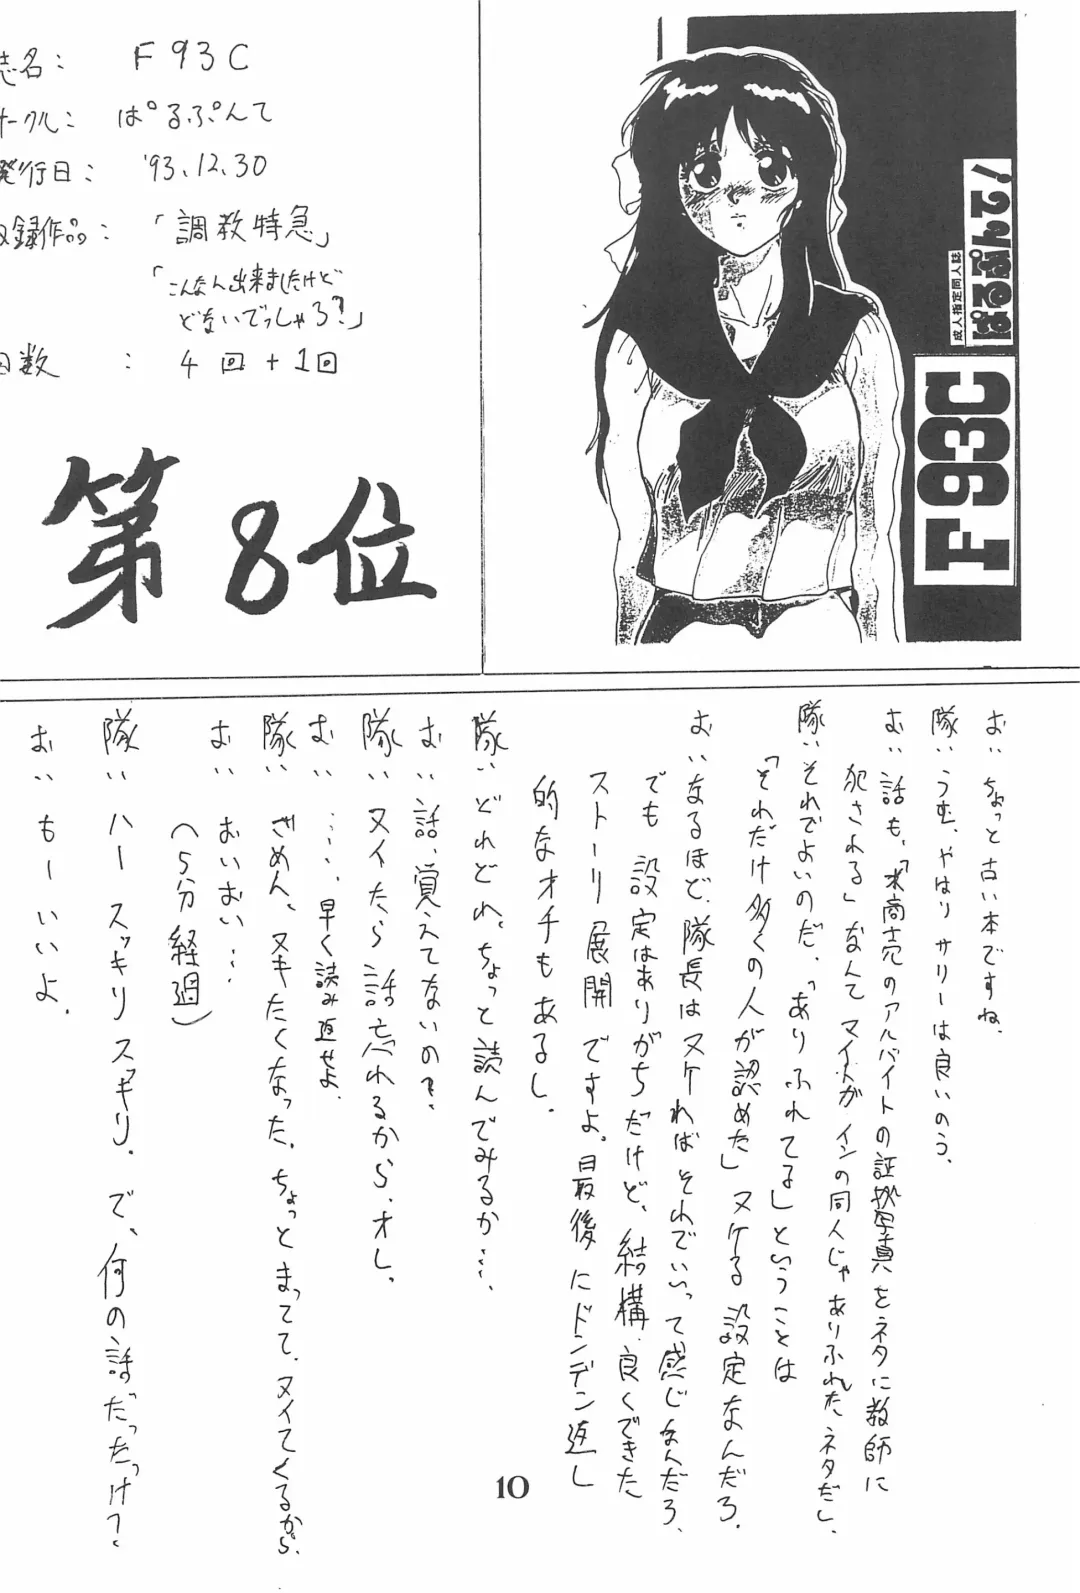 誌名： F93C
サークル： ぱるぷんて
発行日： '93.12.30
収録作品： 「調教特急」
「こんなん出来ましたけど
どないでっしゃろ？」
回数 ： 4回+1回
第8位
成人指定同人誌
ぱるぷんて！
F93C
む‥ ちょっと古い本ですね、
隊‥ うむ、やはりサリーは良いのう、
む‥ 話も、「水商売のアルバイトの証拠写真をネタに教師に
犯される」なんてマイトがインの同人じゃありふれたネタだし、
隊‥ それでよいのだ、「ありふれてる」ということは
「それだけ多くの人が認めた」ヌケる設定なんだろ、
む‥ なるほど、隊長はヌケればそれでいいって感じなんだろ、
でも設定はありがちだけど、結構良くできた
ストーリ展開ですよ。最後にドンデン返し
的なオチもあるし、
隊‥ どれどれ、ちょっと読んでみるか…、
む‥ 話、覚えてないの？
隊‥ ヌイたら話忘れるから、オレ、
む‥ …、早く読み返せよ
隊‥ ごめん、ヌキたくなった、ちょっとまってて、ヌイてくるから、
む‥ おいおい…
（5分経過）
隊‥ ハースッキリスッキリ、で、何の話だったっけ？
む‥ もーいいよ、
10